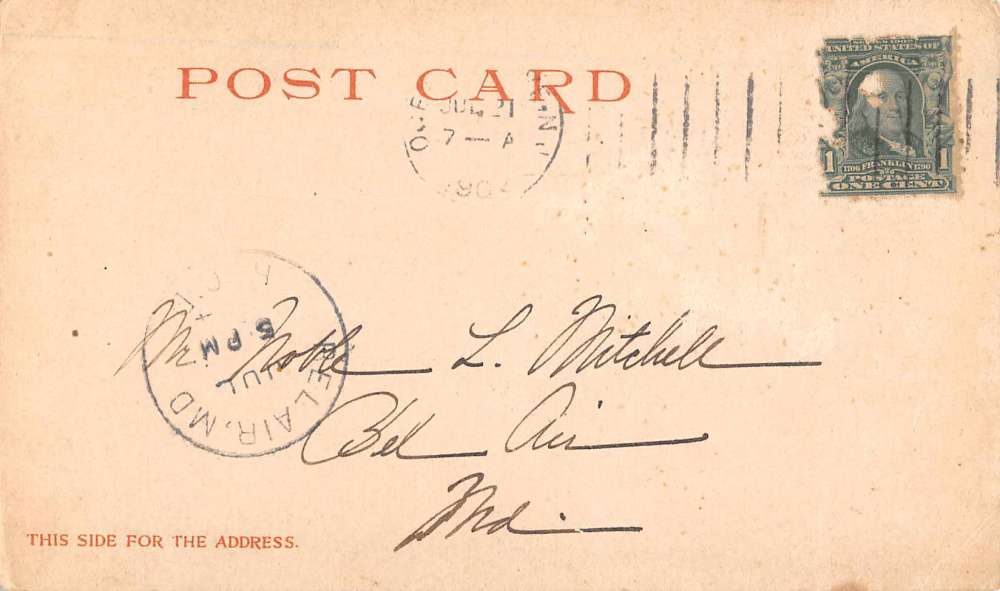 POST CARD
JUL 21
7 — A
SERIES 1902
UNITED STATES OF
AMERICA
1 1706 FRANKLIN 1790 1
POSTAGE
ONE CENT
BELAIR, MD
JUL
5 PM
Mr. Noble L. Mitchell
Bel Air
Md.
THIS SIDE FOR THE ADDRESS.